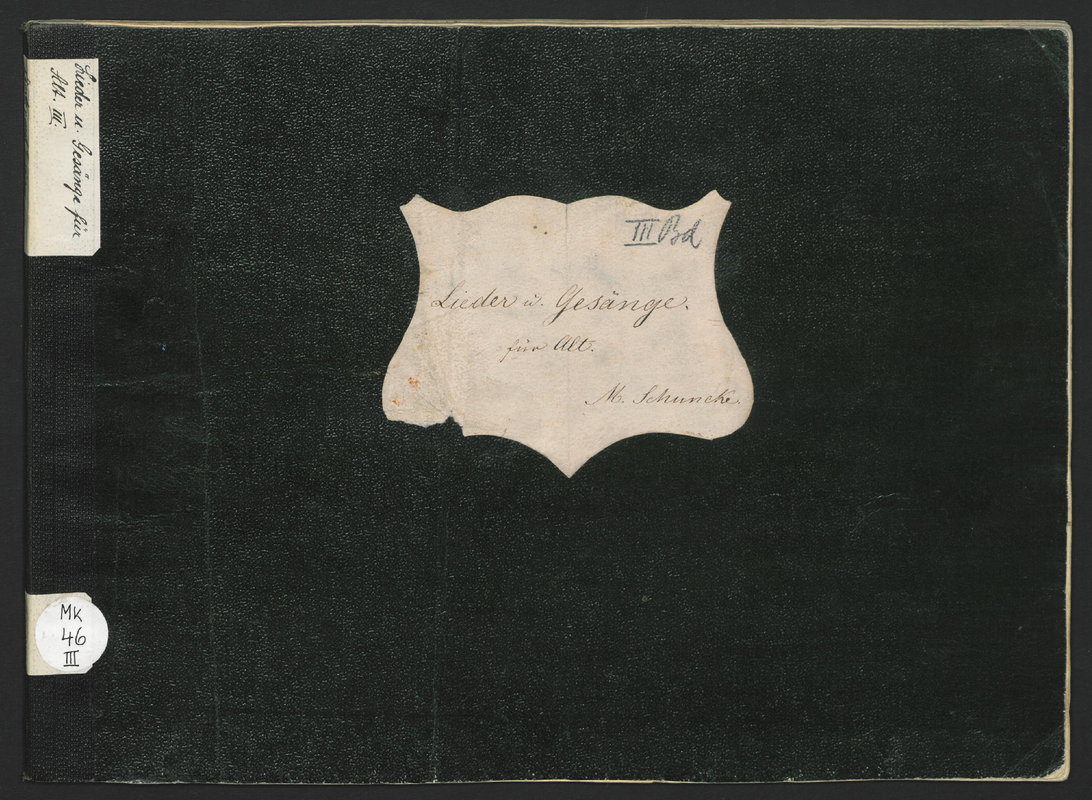 Lieder u. Gesänge für
Alt. III.
III Bd
Lieder u. Gesänge.
für Alt.
M. Schuncke.
MK
46
III